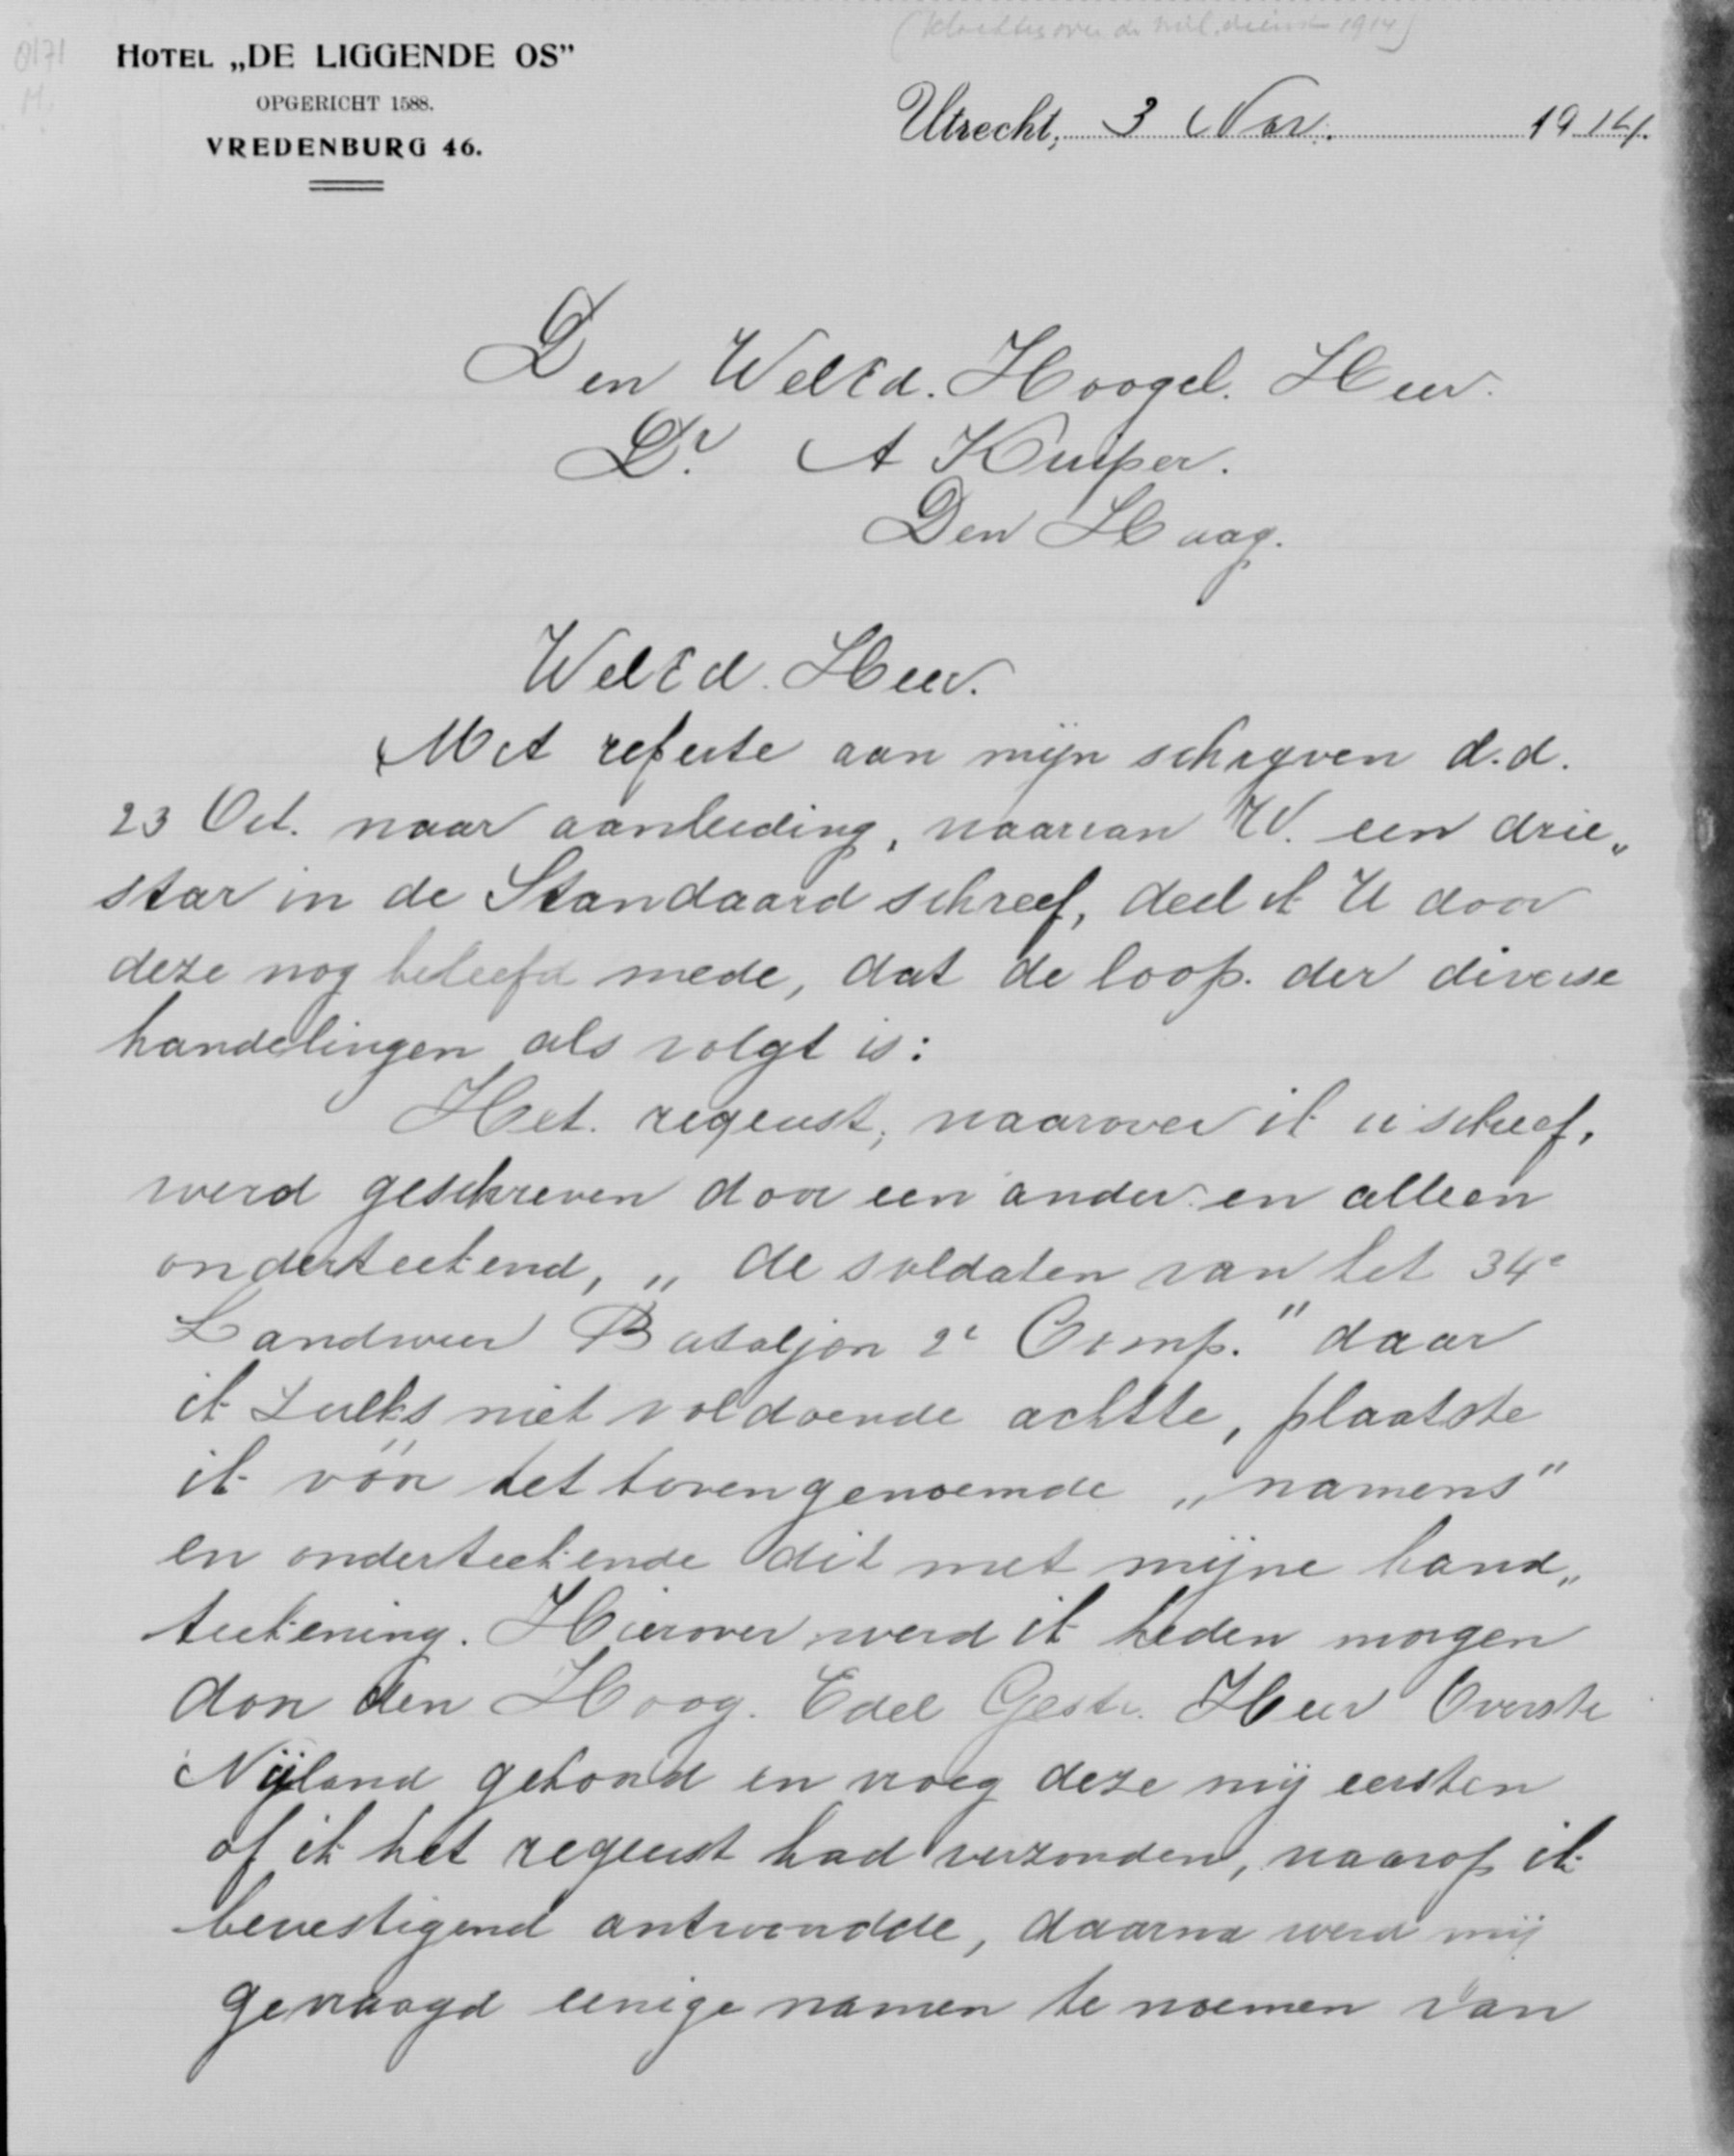 (klachten over de mil. dienst 1914)
0171
M.
HOTEL „DE LIGGENDE OS”
OPGERICHT 1588.
VREDENBURG 46.
Utrecht, 3 Nov. 1914.
Den WelEd. Hoogel. Heer.
Dr. A Kuiper.
Den Haag.
WelEd. Heer.
Met referte aan mijn schrijven d.d.
23 Oct. naar aanleiding, waarvan U. een drie„
star in de Standaard schreef, deel ik U door
deze nog beleefd mede, dat de loop. der diverse
handelingen als volgt is:
Het. request, waarover ik u schreef,
werd geschreven door een ander en alleen
onderteekend, „ de soldaten van het 34e
Landweer Bataljon 2e Comp.” daar
ik zulks niet voldoende achtte, plaatste
ik vóór het bovengenoemde „namens”
en onderteekende dit met mijne hand„
teekening. Hierover werd ik heden morgen
door den Hoog. Edel Gestr. Heer Overste
Nijland gehoord en vroeg deze mij eersten
of ik het request had verzonden, waarop ik
bevestigend antwoordde, daarna werd mij
gevraagd eenige namen te noemen van